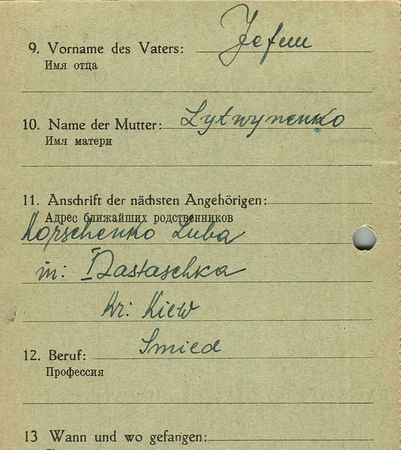 9. Vorname des Vaters: Jefim
Имя отца
10. Name der Mutter: Lytwynenko
Имя матери
11. Anschrift der nächsten Angehörigen:
Адрес ближайших родственников
Korschenko Luba
in: Nastaschka
Kr: Kiew
12. Beruf: Smied
Профессия
13 Wann und wo gefangen: